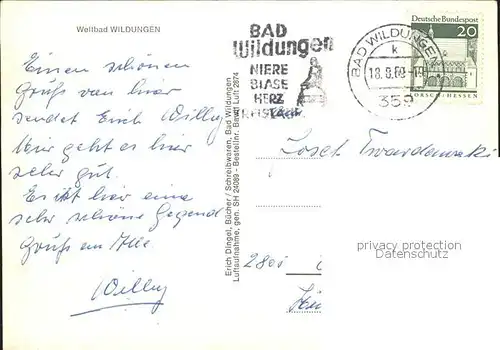 Weltbad WILDUNGEN
Einen schönen
Gruß von hier
sendet Euch Willy
Mir geht es hier
sehr gut.
Es ist hier eine
sehr schöne Gegend
Gruß an Alle
Willy
Erich Dingel, Bücher / Schreibwaren, Bad Wildungen
Luftaufnahme, gen. SH 24089 - Bestellnr. Bewi Luft 2874
BAD
Wildungen
NIERE
BLASE
HERZ
KREISLAUF
BAD WILDUNGEN
k
18.8.69
359
Deutsche Bundespost
20
LORSCH/HESSEN
Josef Twardowski
privacy protection
Datenschutz